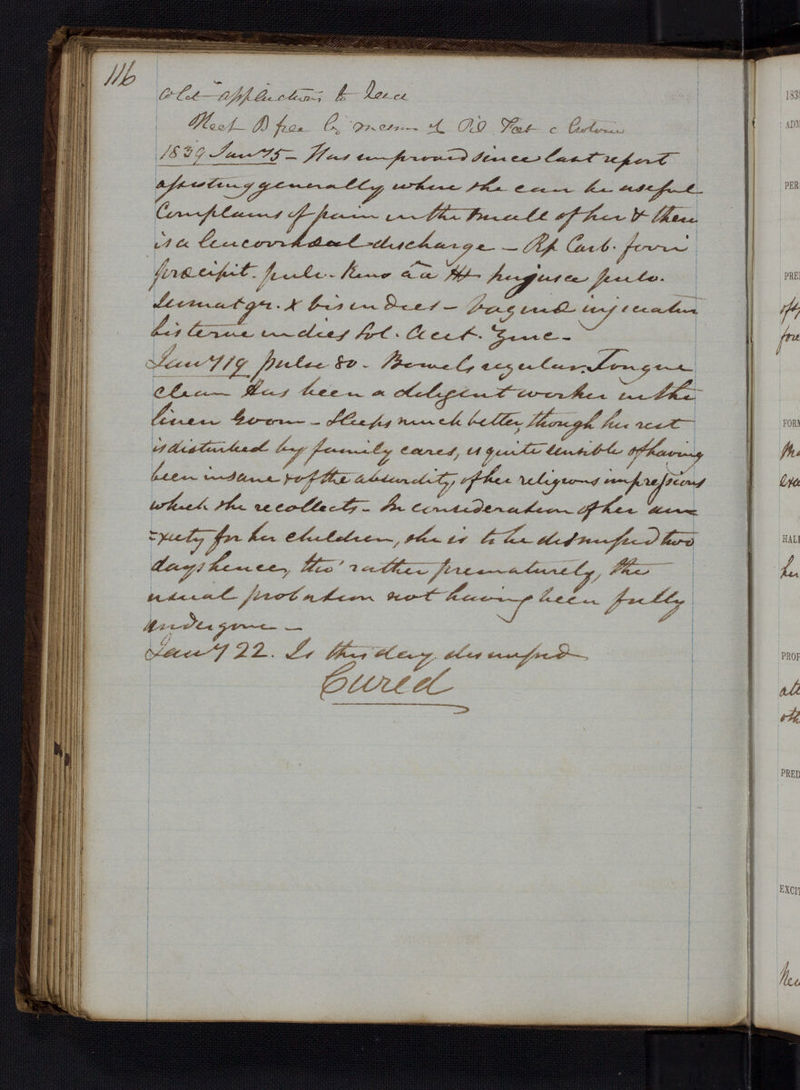 116
Cold applications to head
Keep B free by means of Pil
1839 Jany 5 - Has improved since last report
assisting generally where she can be useful
Complains of pain in the small of her & there
is a leucorrhoeal discharge - Rp Carb. ferri
præcipit. pulv. Kino āā hujusce pulv.
Sumat gr. X bis in dies - Vaginæ injiciatur
bis terve in dies Sol. Acet. Zinc -
Jany 19 pulse 80 - Bowels regular. Tongue
clean Has been a diligent worker in the
linen Room - Sleeps much better, though her rest
is disturbed by family cares, is quite sensible of having
been insane & of the absurdity, of her religious impressions
which she recollects - In consideration of her an=
=xiety for her children, she is to be dismissed two
days hence, tho' rather prematurely, the
usual probation not having been fully
undergone -
Jany 22. Is this day dismissed
Cured
183
ADM
PER
PRE
FORM
HALL
her
PROF
PRED
EXCIT